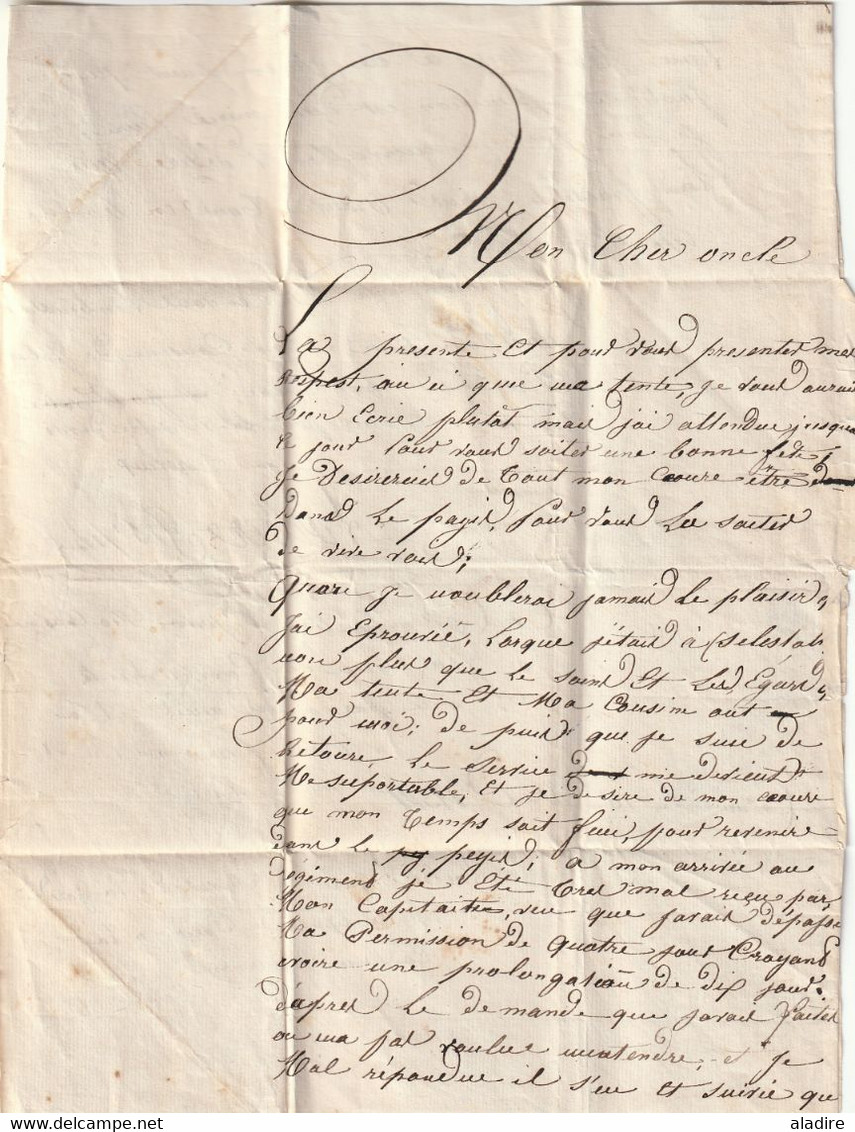 Mon Cher oncle
La presente Et pour vous presenter mes
respest, ausi que ma tente, je vous aurais
bien Ecrie plutôt mais jai attendue jusqua
ce jour Pour vous soiter une bonne fete,
Je Desirerais de tout mon coeure être
Dans Le payis, Pour vous La soiter
de vive vois;
Quare je noublerai jamais Le plaisir q
Jai Eprouvée, Lorque j'étais à Selestat
non plus que Le soins Et Les Egards q
Ma tente Et Ma Cousim ont
pour moi; de puis que je suis de
Retoure, Le Service me devient
Mesuportable, Et je desire de mon coeure
que mon temps soit fini, pour revenire
dans Le py peyis; a mon arrivée au
régiment je Eté tres mal reçu par
Mon Capitaite, veu que javais dépasé
Ma Permission de quatre jour Croyant
avoire une prolongation de dix jour
d'apres Le demande que javais faites
on ma pas voulue mentendre, et je
Mal répondue il s'eu Et suivie que
aladire